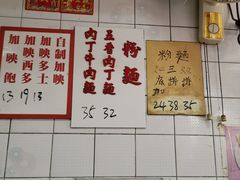 自制加映
加映多士
加映西多
加映飽
13 19 13
粉麵
五香肉丁麵
肉丁牛肉麵
35 32
粉麵
二三
底拼拼
加
24 38 35